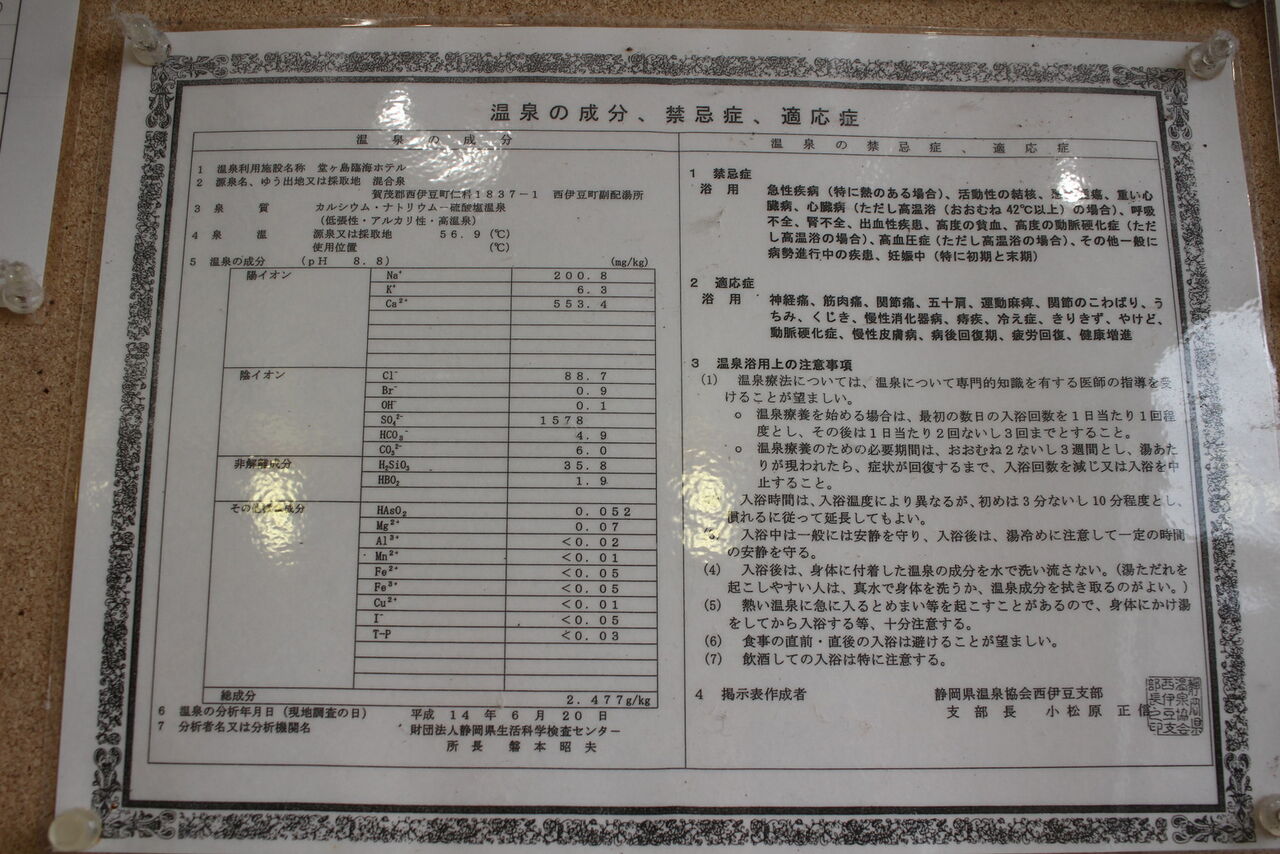 温泉の成分、禁忌症、適応症
温泉の成分
1 温泉利用施設名称 堂ヶ島臨海ホテル
2 源泉名、ゆう出地又は採取地 混合泉
賀茂郡西伊豆町仁科1837-1 西伊豆町副配湯所
3 泉質 カルシウム・ナトリウム-硫酸塩温泉
(低張性・アルカリ性・高温泉)
4 泉温 源泉又は採取地 56.9(℃)
使用位置 (℃)
5 温泉の成分 (pH 8.8) (mg/kg)
陽イオン Na⁺ 200.8
K⁺ 6.3
Ca²⁺ 553.4
陰イオン Cl⁻ 88.7
Br⁻ 0.9
OH⁻ 0.1
SO₄²⁻ 1578
HCO₃⁻ 4.9
CO₃²⁻ 6.0
非解離成分 H₂SiO₃ 35.8
HBO₂ 1.9
その他 成分 HAsO₂ 0.052
Mg²⁺ 0.07
Al³⁺ <0.02
Mn²⁺ <0.01
Fe²⁺ <0.05
Fe³⁺ <0.05
Cu²⁺ <0.01
I⁻ <0.05
T-P <0.03
総成分 2.477g/kg
6 温泉の分析年月日(現地調査の日) 平成 14年 6月 20日
7 分析者名又は分析機関名 財団法人静岡県生活科学検査センター
所長 磐本昭夫
温泉の禁忌症、適応症
1 禁忌症
浴用 急性疾病(特に熱のある場合)、活動性の結核、 腫瘍、重い心
臓病、心臓病(ただし高温浴(おおむね42℃以上)の場合)、呼吸
不全、腎不全、出血性疾患、高度の貧血、高度の動脈硬化症(ただ
し高温浴の場合)、高血圧症(ただし高温浴の場合)、その他一般に
病勢進行中の疾患、妊娠中(特に初期と末期)
2 適応症
浴用 神経痛、筋肉痛、関節痛、五十肩、運動麻痺、関節のこわばり、う
ちみ、くじき、慢性消化器病、痔疾、冷え症、きりきず、やけど、
動脈硬化症、慢性皮膚病、病後回復期、疲労回復、健康増進
3 温泉浴用上の注意事項
(1) 温泉療法については、温泉について専門的知識を有する医師の指導を受
けることが望ましい。
○ 温泉療養を始める場合は、最初の数日の入浴回数を1日当たり1回程
度とし、その後は1日当たり2回ないし3回までとすること。
○ 温泉療養のための必要期間は、おおむね2ないし3週間とし、湯あた
りが現われたら、症状が回復するまで、入浴回数を減じ又は入浴を中
止すること。
入浴時間は、入浴温度により異なるが、初めは3分ないし10分程度とし、
慣れるに従って延長してもよい。
入浴中は一般には安静を守り、入浴後は、湯冷めに注意して一定の時間
の安静を守る。
(4) 入浴後は、身体に付着した温泉の成分を水で洗い流さない。(湯ただれを
起こしやすい人は、真水で身体を洗うか、温泉成分を拭き取るのがよい。)
(5) 熱い温泉に急に入るとめまい等を起こすことがあるので、身体にかけ湯
をしてから入浴する等、十分注意する。
(6) 食事の直前・直後の入浴は避けることが望ましい。
(7) 飲酒しての入浴は特に注意する。
4 掲示表作成者 静岡県温泉協会西伊豆支部
支部長 小松原 正信
静岡県温泉協会西伊豆支部長之印